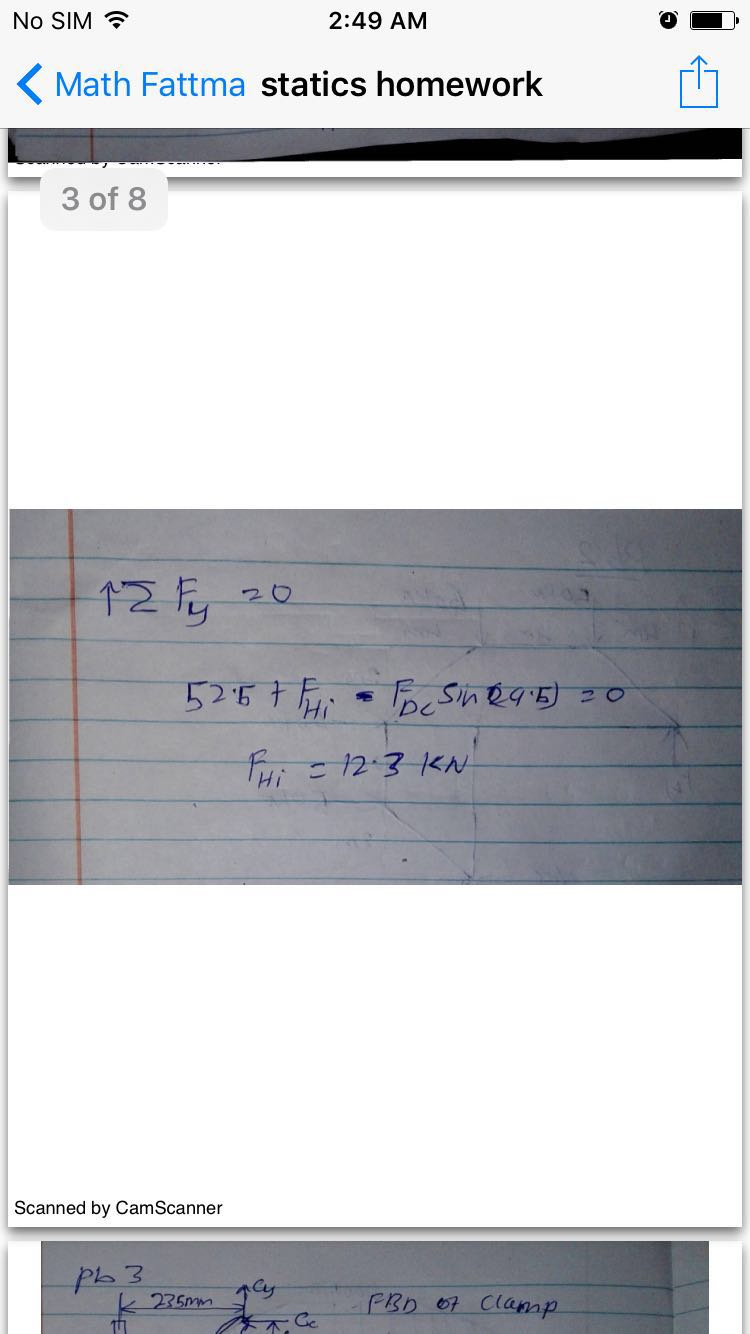 No SIM 2:49 AM
Math Fattma statics homework
3 of 8
↑Σ Fy = 0
52.5 + FHi - FDC Sin(29.5) = 0
FHi = 12.3 KN
Scanned by CamScanner
Pb 3
235mm Cy FBD of Clamp